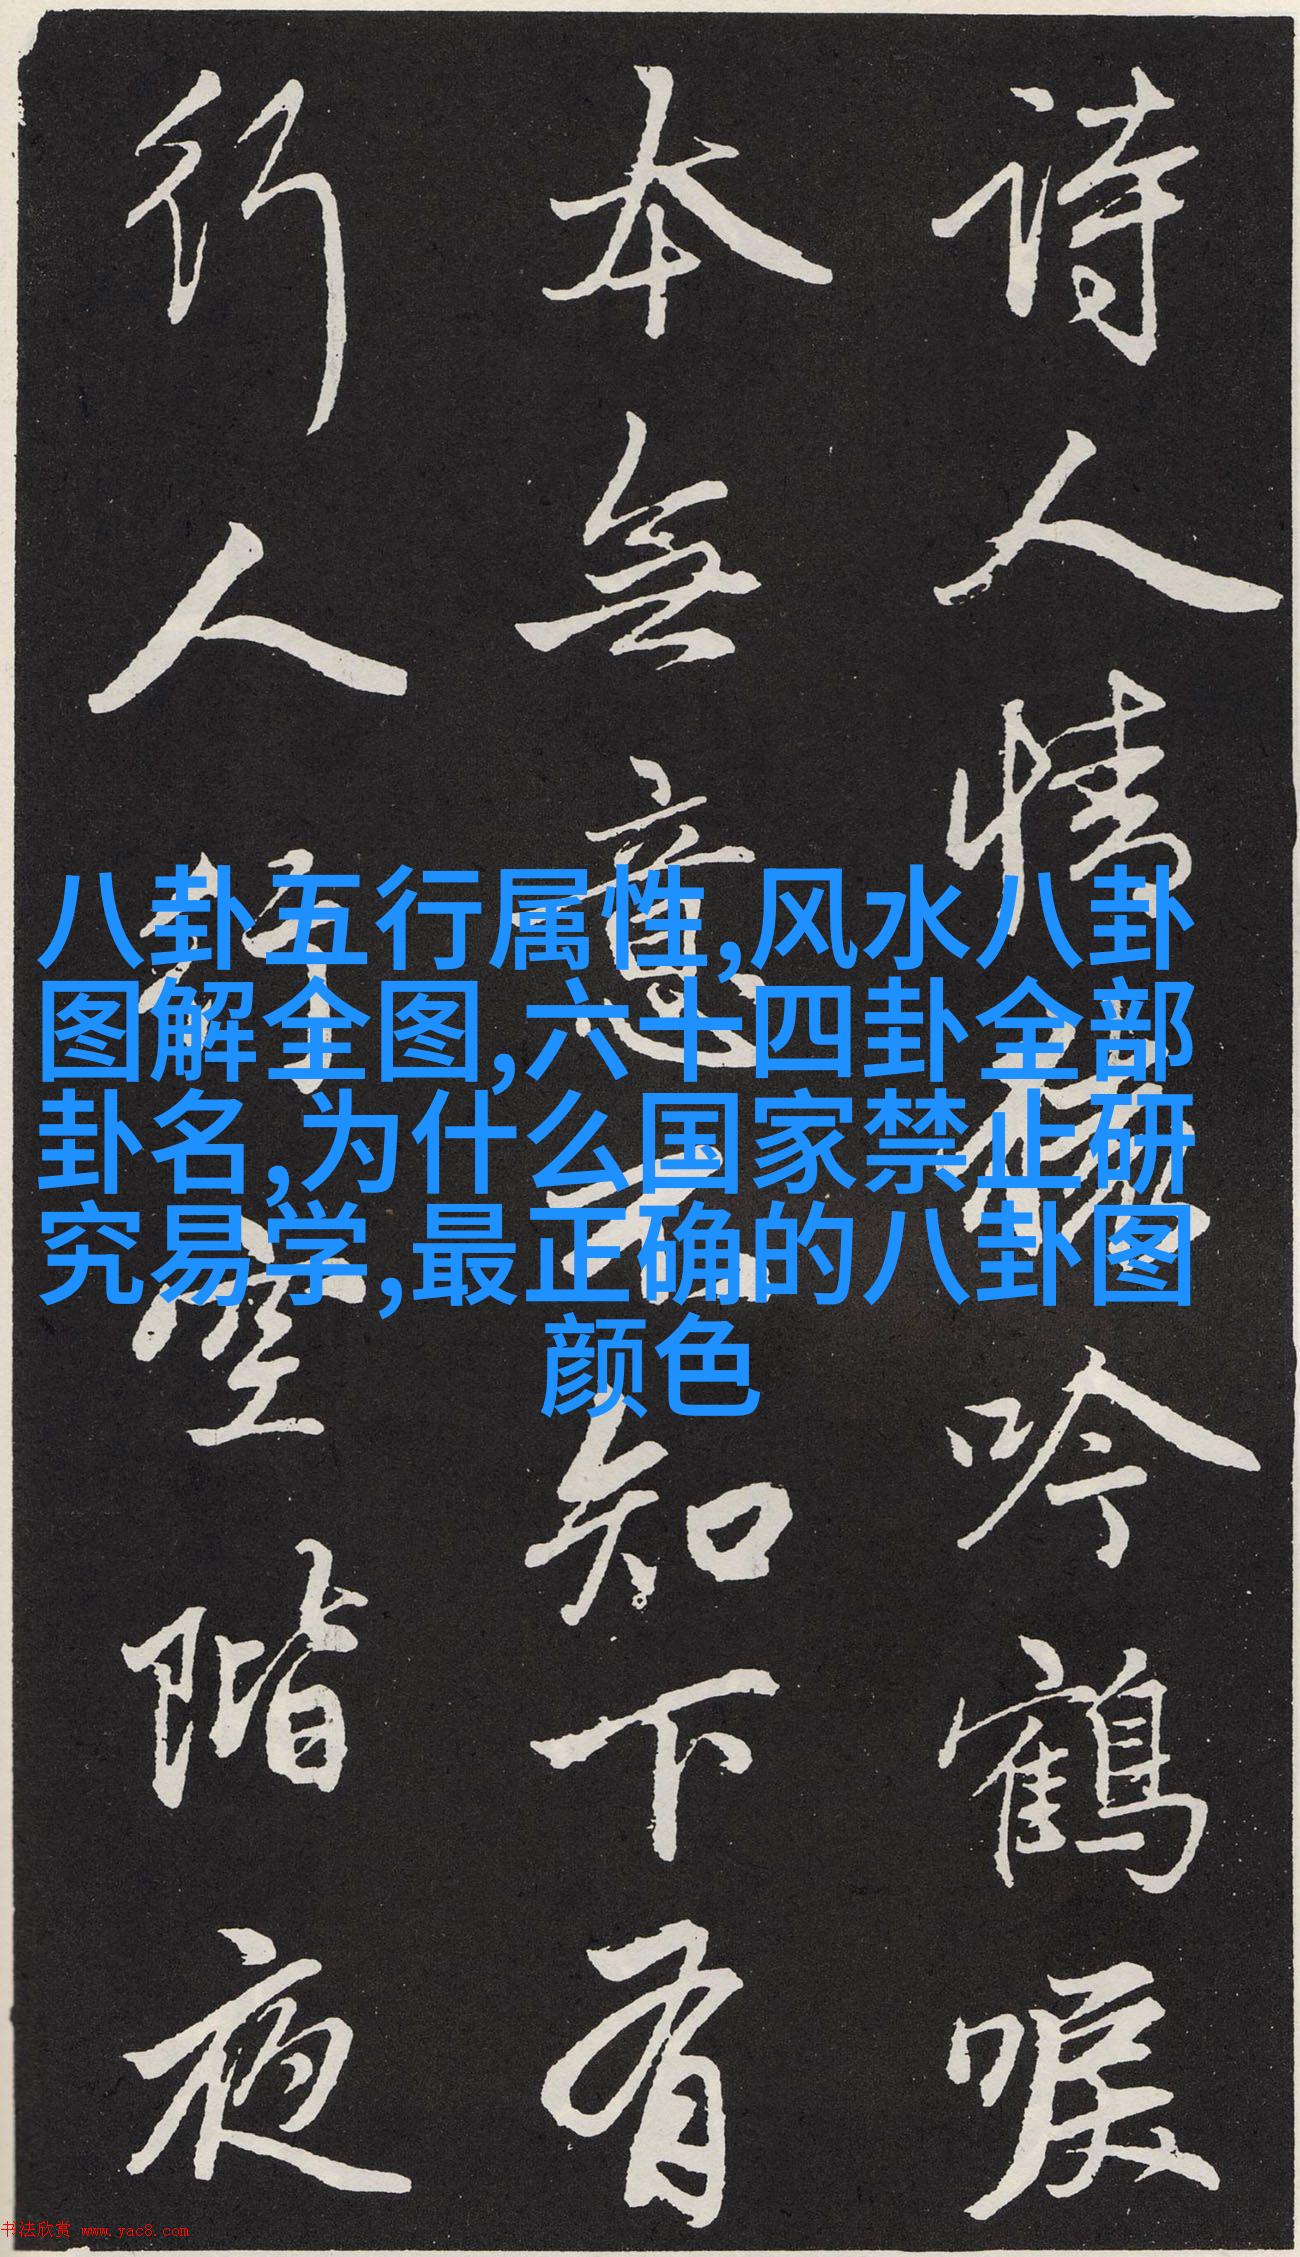 八卦五行属性,风水八卦
图解全图,六十四卦全部
卦名,为什么国家禁止研
究易学,最正确的八卦图
颜色
诗人情吟鶴唳
本無意知下有
行人行空階夜
书法欣赏 www.yac8.com